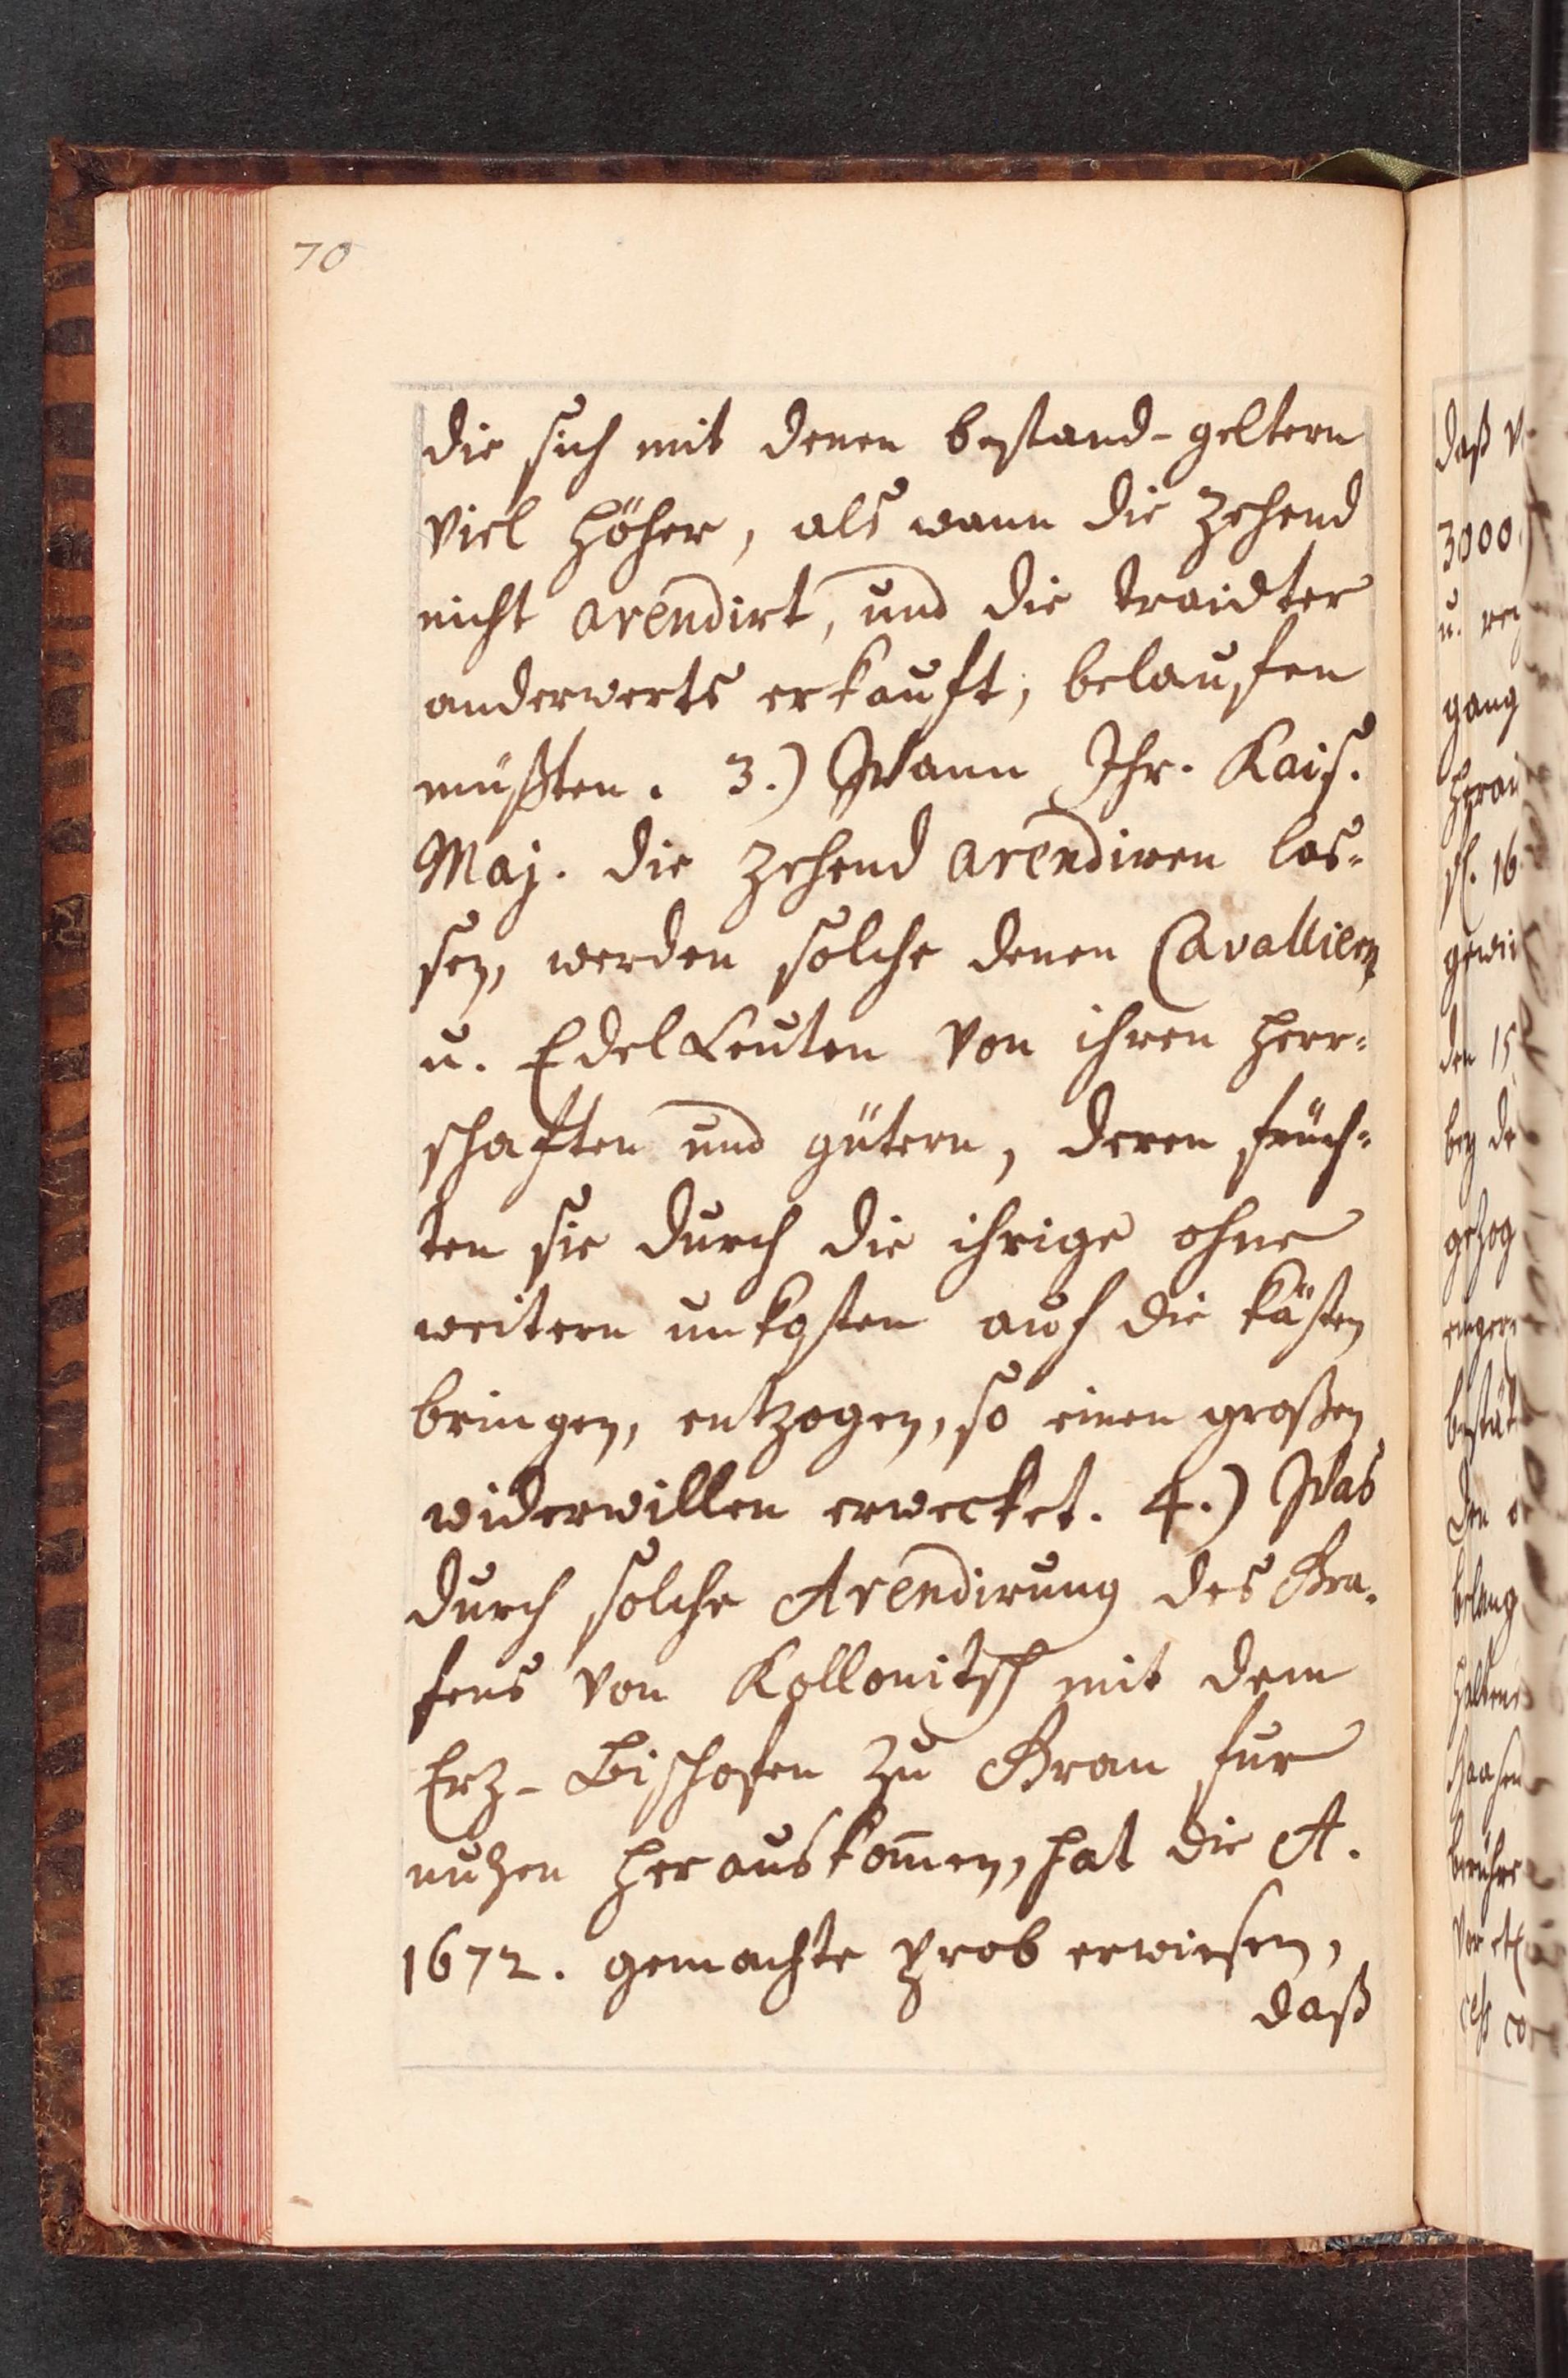 70
die sich mit denen bestand-geltern
viel höher, als wann die zehend
nicht arendirt, und die traidter
anderwerts erkauft, belaufen
müßten. 3.) Wann Ihr. Kais.
Maj. die zehend arendiren las=
sen, werden solche denen Cavalliern
u. EdelLeuten von ihren herr=
schaften und gütern, deren früch=
ten sie durch die ihrige ohne
weitern unkosten auf die kästen
bringen, entzogen, so einen großen
widerwillen erwecket. 4.) Was
durch solche Arendirung des Gra=
fens von Kollonitsch mit dem
Erz-Bischofen zu Gran fur
nuzen herauskom̄en, hat die A.
1672. gemachte prob erwiesen,
daß
daß
3000.
u.
gang
fl. 16
den 15
bey de
gezog
den
belang